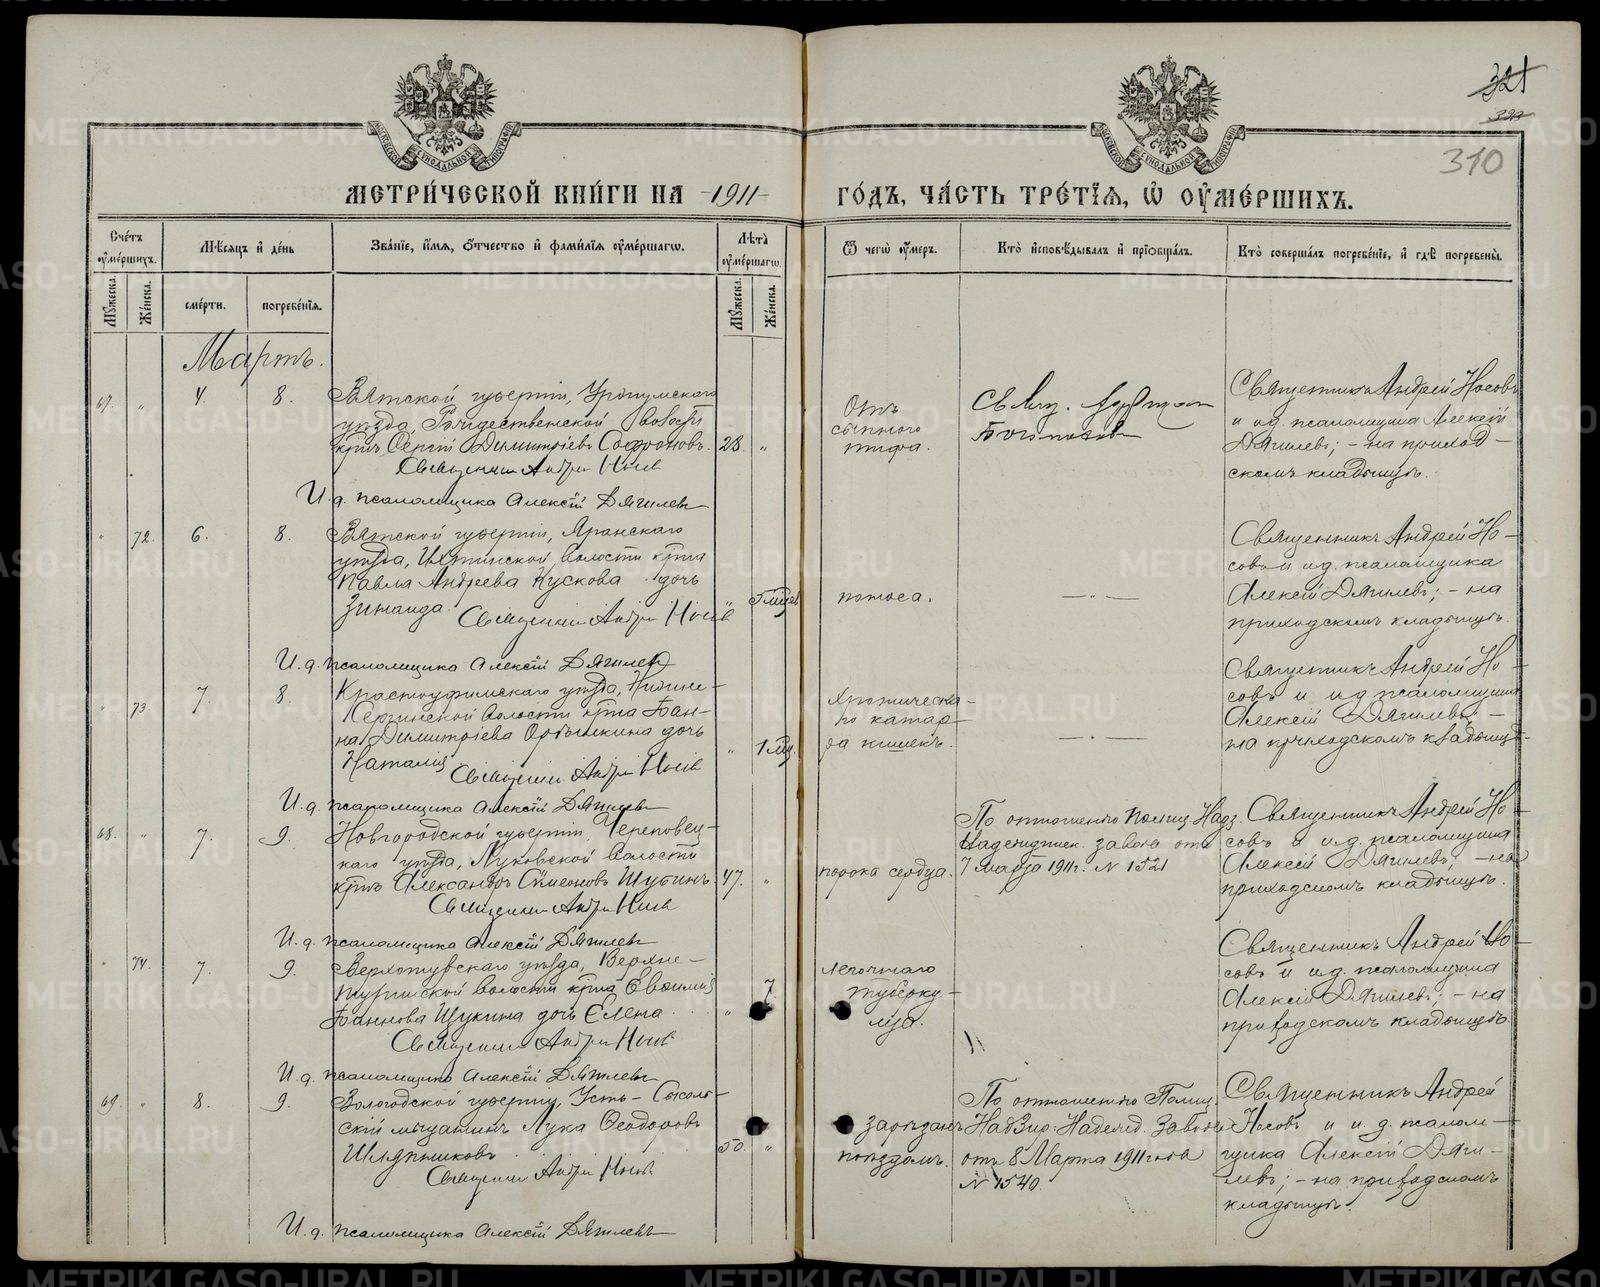 МЕТРИ́ЧЕСКОЙ КНИ́ГИ НА -1911- ГО́ДЪ, ЧА́СТЬ ТРЕ́ТІЯ, Ѡ ОУМЕ́РШИХЪ.
321
322
310
Сче́тъ оуме́ршихъ.
Мѣсяцъ и де́нь
Зва́ніе, и́мя, о́тчество и фами́лія оуме́ршагѡ.
Лѣта̀ оуме́ршагѡ.
Ѿ чегѡ̀ оу́меръ.
Кто̀ исповѣ́дывалъ и пріобща́лъ.
Кто̀ соверша́лъ погребе́ніе, и гдѣ̀ погребены̀.
Му́жеска.
Же́нска.
сме́рти.
погребе́нія.
Му́жеска.
Же́нска.
Мартъ.
67. " 4 8.
Вятской губерніи, Уржумскаго
уѣзда, Рождественской волости
кр̃нъ Сергій Димитріевъ Софроновъ. 28. "
Священникъ Андрей Носовъ
И. д. псаломщика Алексій Дягилевъ
Отъ
сыпного
тифа.
Священникъ Андрей Носовъ
и и.д. псаломщика Алексій
Дягилевъ; – на приход-
скомъ кладбищѣ.
" 72. 6. 8.
Вятской губерніи, Яранскаго
уѣзда, Ихтинской волости кр̃на
Павла Андреева Кускова дочь
Зинаида. " 5 мѣсяц.
Священникъ Андрей Носовъ
И. д. псаломщика Алексій Дягилевъ
поноса.
— " —
Священникъ Андрей Но-
совъ и и.д. псаломщика
Алексій Дягилевъ; – на
приходскомъ кладбищѣ.
" 73 7. 8.
Красноуфимскаго уѣзда, Нижне-
Сергинской волости кр̃на Іоан-
на Димитріева дочь
Наталія " 1 мѣс.
Священникъ Андрей Носовъ
И. д. псаломщика Алексій Дягилевъ
Хроническа-
го катар-
ра кишекъ.
— " —
Священникъ Андрей Но-
совъ и и.д. псаломщика
Алексій Дягилевъ, –
на приходскомъ кладбищѣ.
68. " 7. 9.
Новгородской губерніи, Череповец-
каго уѣзда, Луковской волости
кр̃нъ Александръ Сѵмеоновъ Шубинъ 47. "
Священникъ Андрей Носовъ
И. д. псаломщика Алексій Дягилевъ
порока сердца.
По отношенію Полиц. Надз.
Надеждинск. завода отъ
7 марта 1911 г. N 1521
Священникъ Андрей Но-
совъ и и.д. псаломщика
Алексій Дягилевъ, – на
приходскомъ кладбищѣ.
" 74. 7. 9.
Верхотурскаго уѣзда, Верхне-
туринской волости кр̃на Евѳимія
Іоаннова Щукина дочь Елена " 7.
Священникъ Андрей Носовъ
И. д. псаломщика Алексій Дягилевъ
легочнаго
туберку-
леза.
Священникъ Андрей Но-
совъ и и.д. псаломщика
Алексій Дягилевъ; – на
приходскомъ кладбищѣ.
69. " 8. 9.
Вологодской губерніи, Усть-Сысоль-
скій мѣщанинъ Лука Ѳеодоровъ
Шляпниковъ. 50. "
Священникъ Андрей Носовъ
И. д. псаломщика Алексій Дягилевъ
зарѣзанъ
поѣздомъ.
По отношенію Полиц.
Надзир. Надежд. Завода
отъ 8 Марта 1911 года
N 1540.
Священникъ Андрей
Носовъ и и.д. псалом-
щика Алексій Дяги-
левъ; – на приходскомъ
кладбищѣ.
METRIKI.GASO-URAL.RU